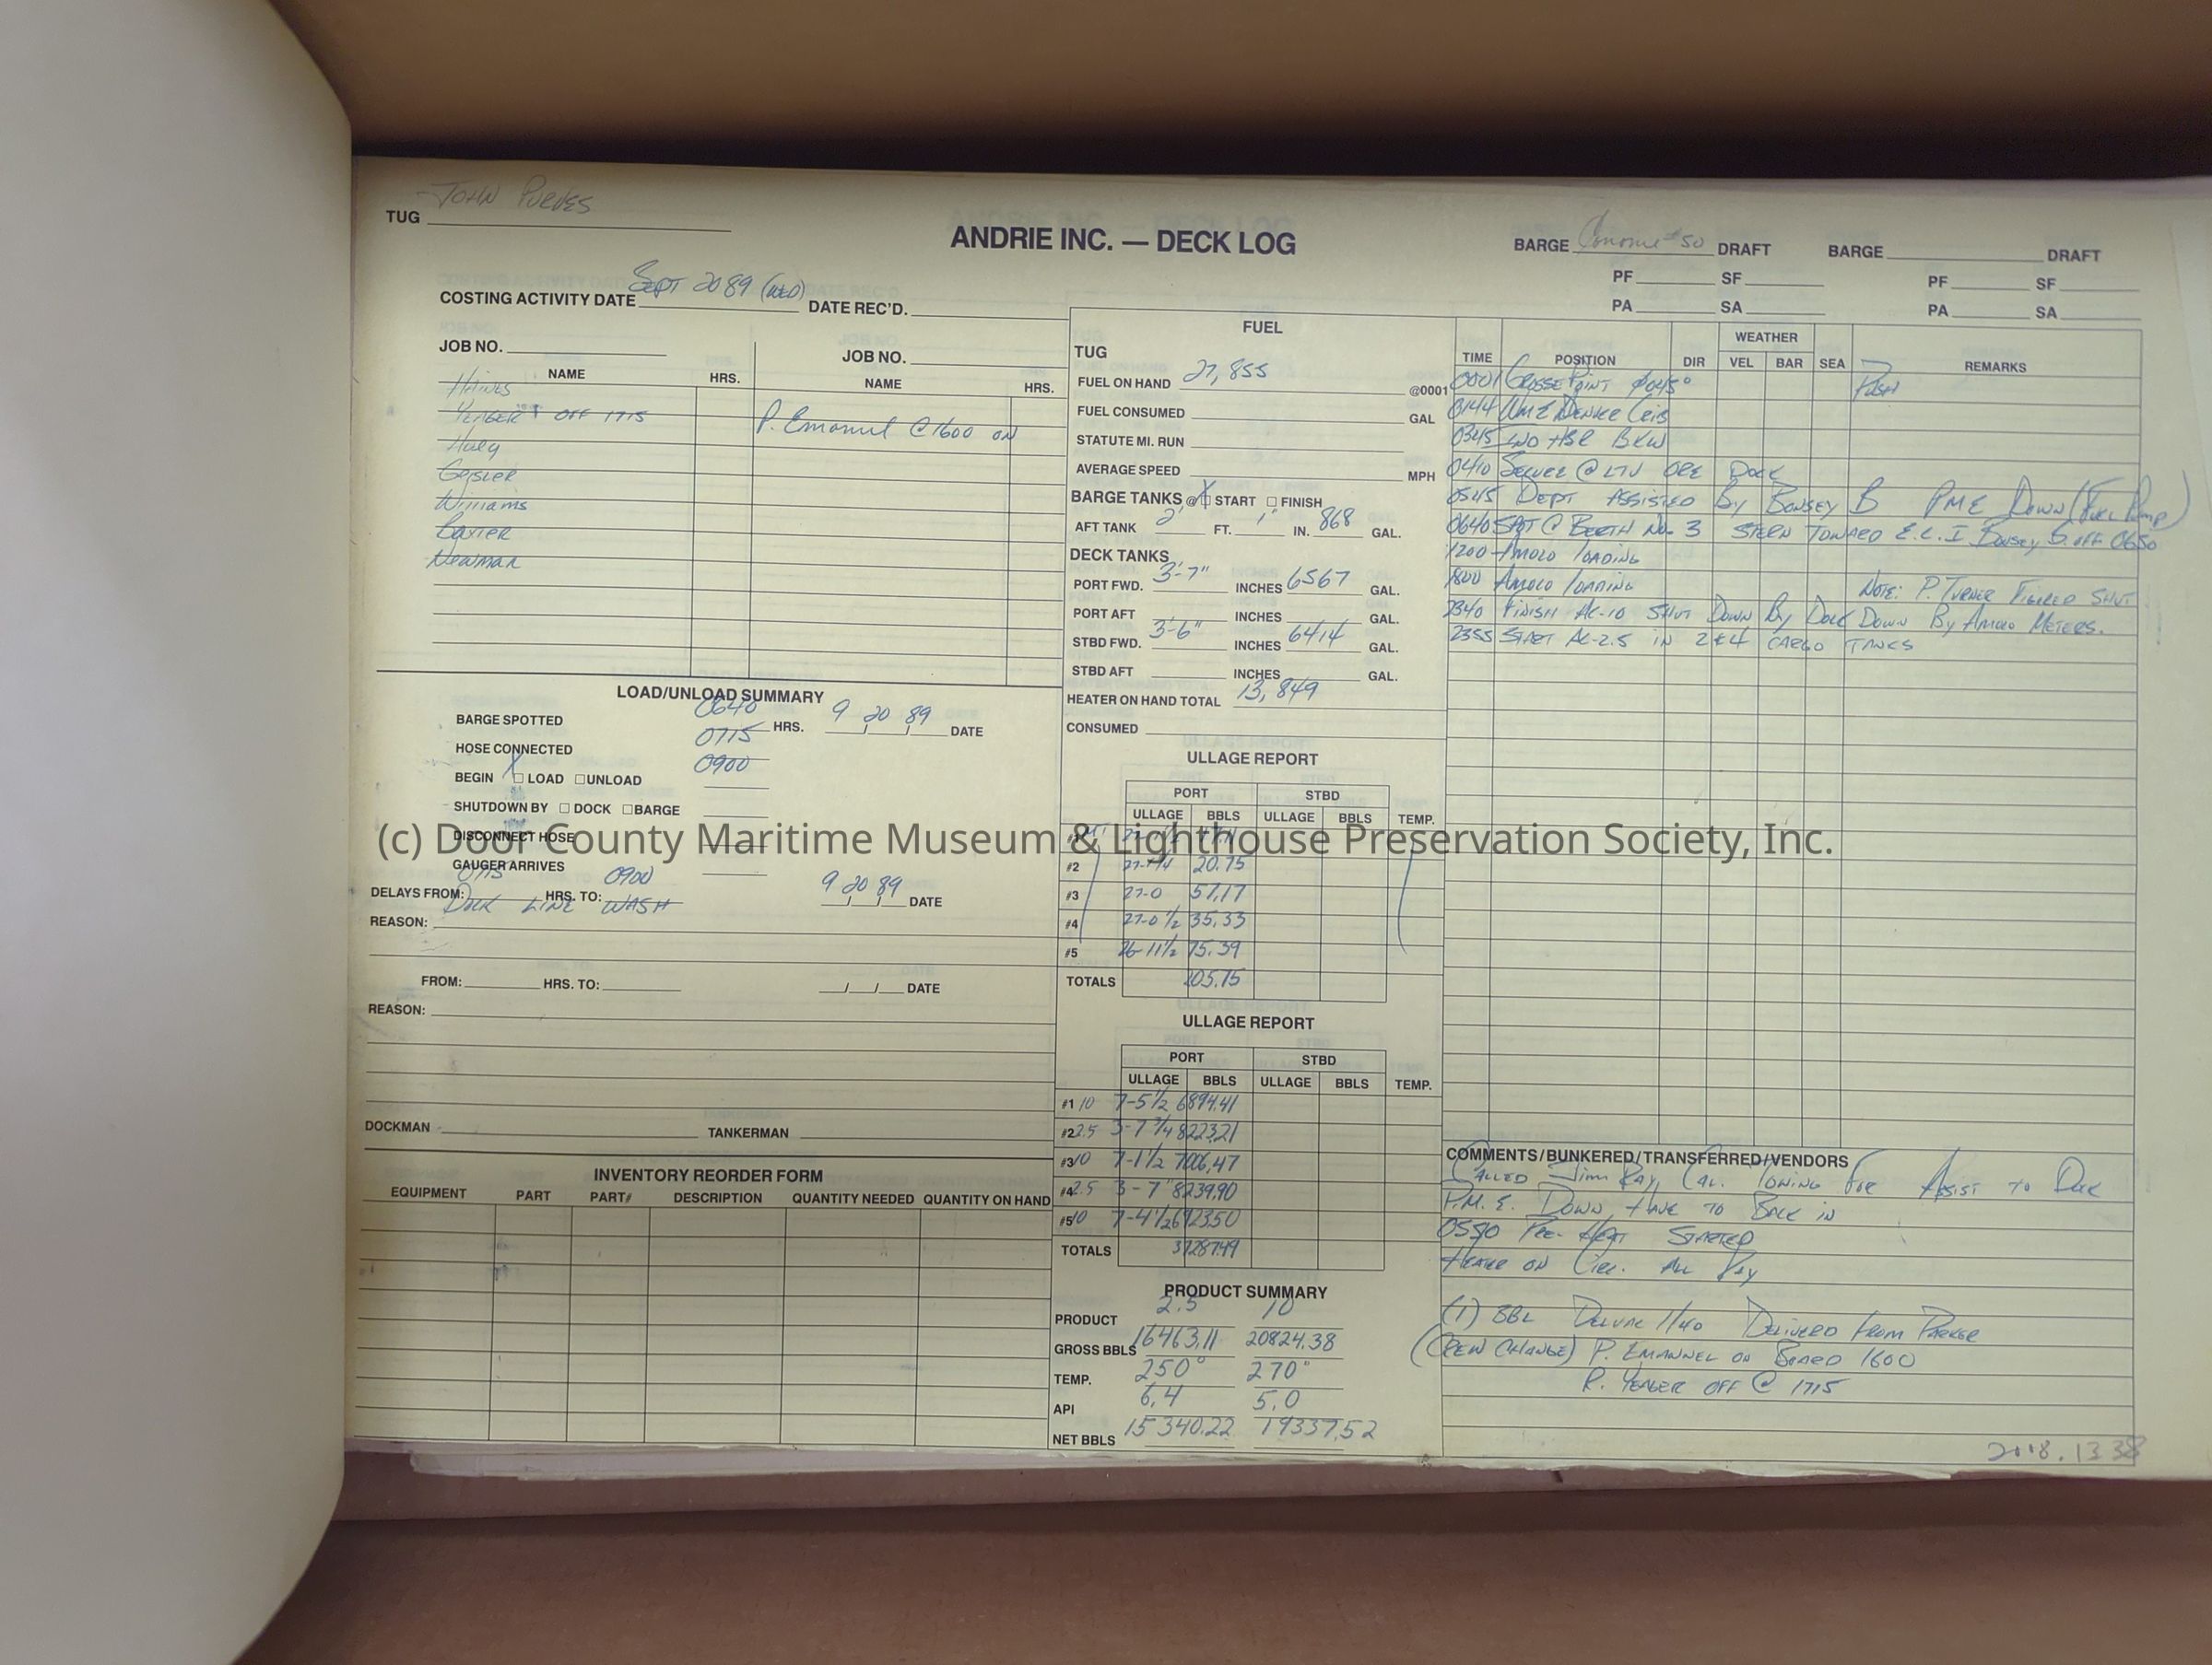 JOHN PURVES
TUG
ANDRIE INC. — DECK LOG
BARGE #50 DRAFT
PF SF
PA SA
BARGE DRAFT
PF SF
PA SA
COSTING ACTIVITY DATE SEPT 20 89 (WED) DATE REC'D.
JOB NO.
NAME HRS.
YEAGER OFF 1715
Geisler
Williams
Baxter
Newman
JOB NO.
NAME HRS.
P. Emanuel @ 1600 on
LOAD/UNLOAD SUMMARY
BARGE SPOTTED 0640 HRS. 9/20/89 DATE
HOSE CONNECTED 0715
BEGIN X LOAD UNLOAD 0900
SHUTDOWN BY DOCK BARGE
DISCONNECT HOSE
GAUGER ARRIVES
DELAYS FROM: 0715 HRS. TO: 0900 9/20/89 DATE
REASON: DOCK LINE WASH
FROM: HRS. TO: / / DATE
REASON:
DOCKMAN TANKERMAN
INVENTORY REORDER FORM
EQUIPMENT PART PART# DESCRIPTION QUANTITY NEEDED QUANTITY ON HAND
FUEL
TUG
FUEL ON HAND 27,855 @0001
FUEL CONSUMED GAL
STATUTE MI. RUN
AVERAGE SPEED MPH
BARGE TANKS @ X START FINISH
AFT TANK 2' FT. 1" IN. 868 GAL.
DECK TANKS
PORT FWD. 3'-7" INCHES 6567 GAL.
PORT AFT INCHES GAL.
STBD FWD. 3'-6" INCHES 6414 GAL.
STBD AFT INCHES GAL.
HEATER ON HAND TOTAL 13,849
CONSUMED
ULLAGE REPORT
PORT STBD
ULLAGE BBLS ULLAGE BBLS TEMP.
#2 20.75
#3 27-0 57.17
#4 27-0 1/2 35.33
#5 26-11 1/2 75.39
TOTALS 205.75
ULLAGE REPORT
PORT STBD
ULLAGE BBLS ULLAGE BBLS TEMP.
#1 10 7-5 1/2 6894.41
#2 2.5 3-7 3/4 8223.21
#3 10 7-1 1/2 7006.47
#4 2.5 3-7" 8239.90
#5 10 7-4 1/2 6923.50
TOTALS 37287.49
PRODUCT SUMMARY
PRODUCT 2.5 10
GROSS BBLS 16463.11 20824.38
TEMP. 250° 270°
API 6.4 5.0
NET BBLS 15340.22 19337.52
TIME POSITION DIR WEATHER VEL BAR SEA REMARKS
0001 GROSSE POINT 045° PUSH
0144
0345 IND HBR BKW
0410 SECURE @ LTV ORE DOCK
0545 DEPT ASSISTED BY BONSEY B PME DOWN (FUEL PUMP)
0640 SPOT @ BERTH NO. 3 STERN TOWARD E.C.I Bonsey B. off 0650
1200 AMOCO LOADING
1800 AMOCO LOADING NOTE: P. TURNER FIGURED SHUT
2340 FINISH AC-10 SHUT DOWN BY DOCK DOWN BY AMOCO METERS.
2355 START AC-2.5 IN 2&4 CARGO TANKS
COMMENTS/BUNKERED/TRANSFERRED/VENDORS
CALLED Jim RAY, CAL. TOWING FOR ASSIST TO DOCK
P.M.E. DOWN, HAVE TO BACK IN
PRE-HEAT STARTED
HEATER ON CIRC. ALL DAY
(1) BBL 1/40 DELIVERD FROM PARKER
(CREW CHANGE) P. EMANNEL ON BOARD 1600
R. YEAGER OFF @ 1715
2018.13.38
(c) Door County Maritime Museum & Lighthouse Preservation Society, Inc.